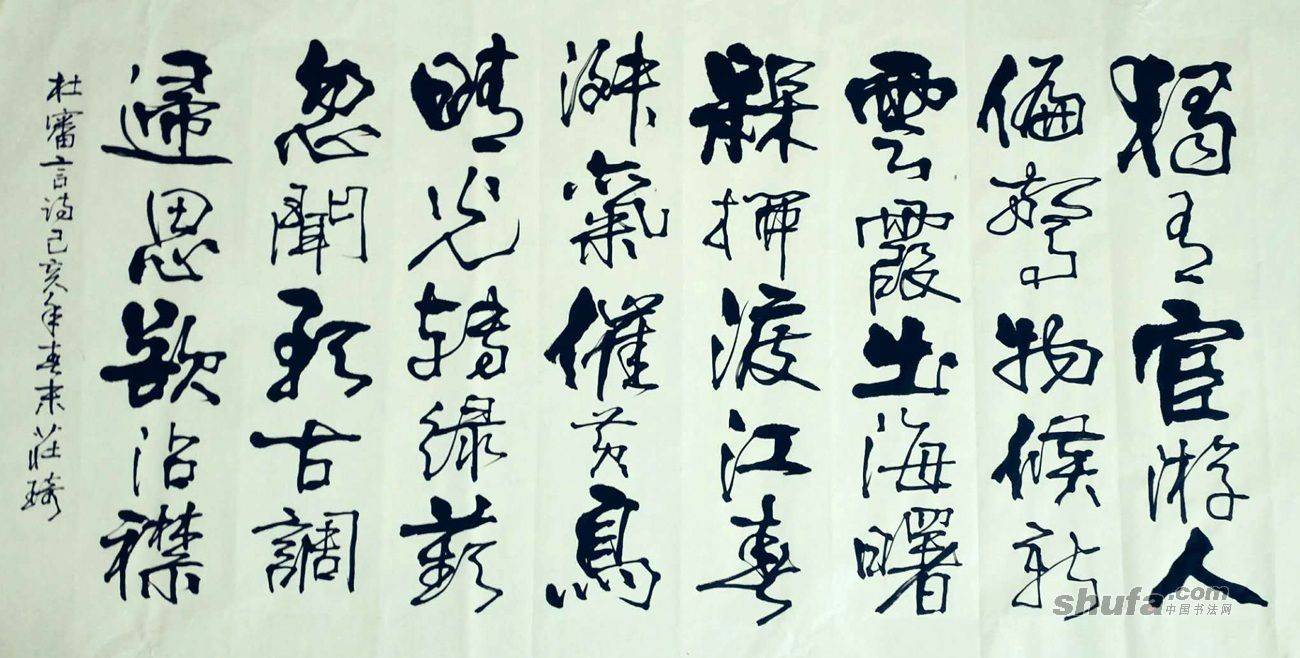 獨有宦游人
偏驚物候新
雲霞出海曙
槑柳渡江春
淑氣催黄鳥
晴光轉緑蘋
忽聞歌古調
歸思欲沾襟
杜審言诗己亥年春末莊琦
shufa.com
中国书法网